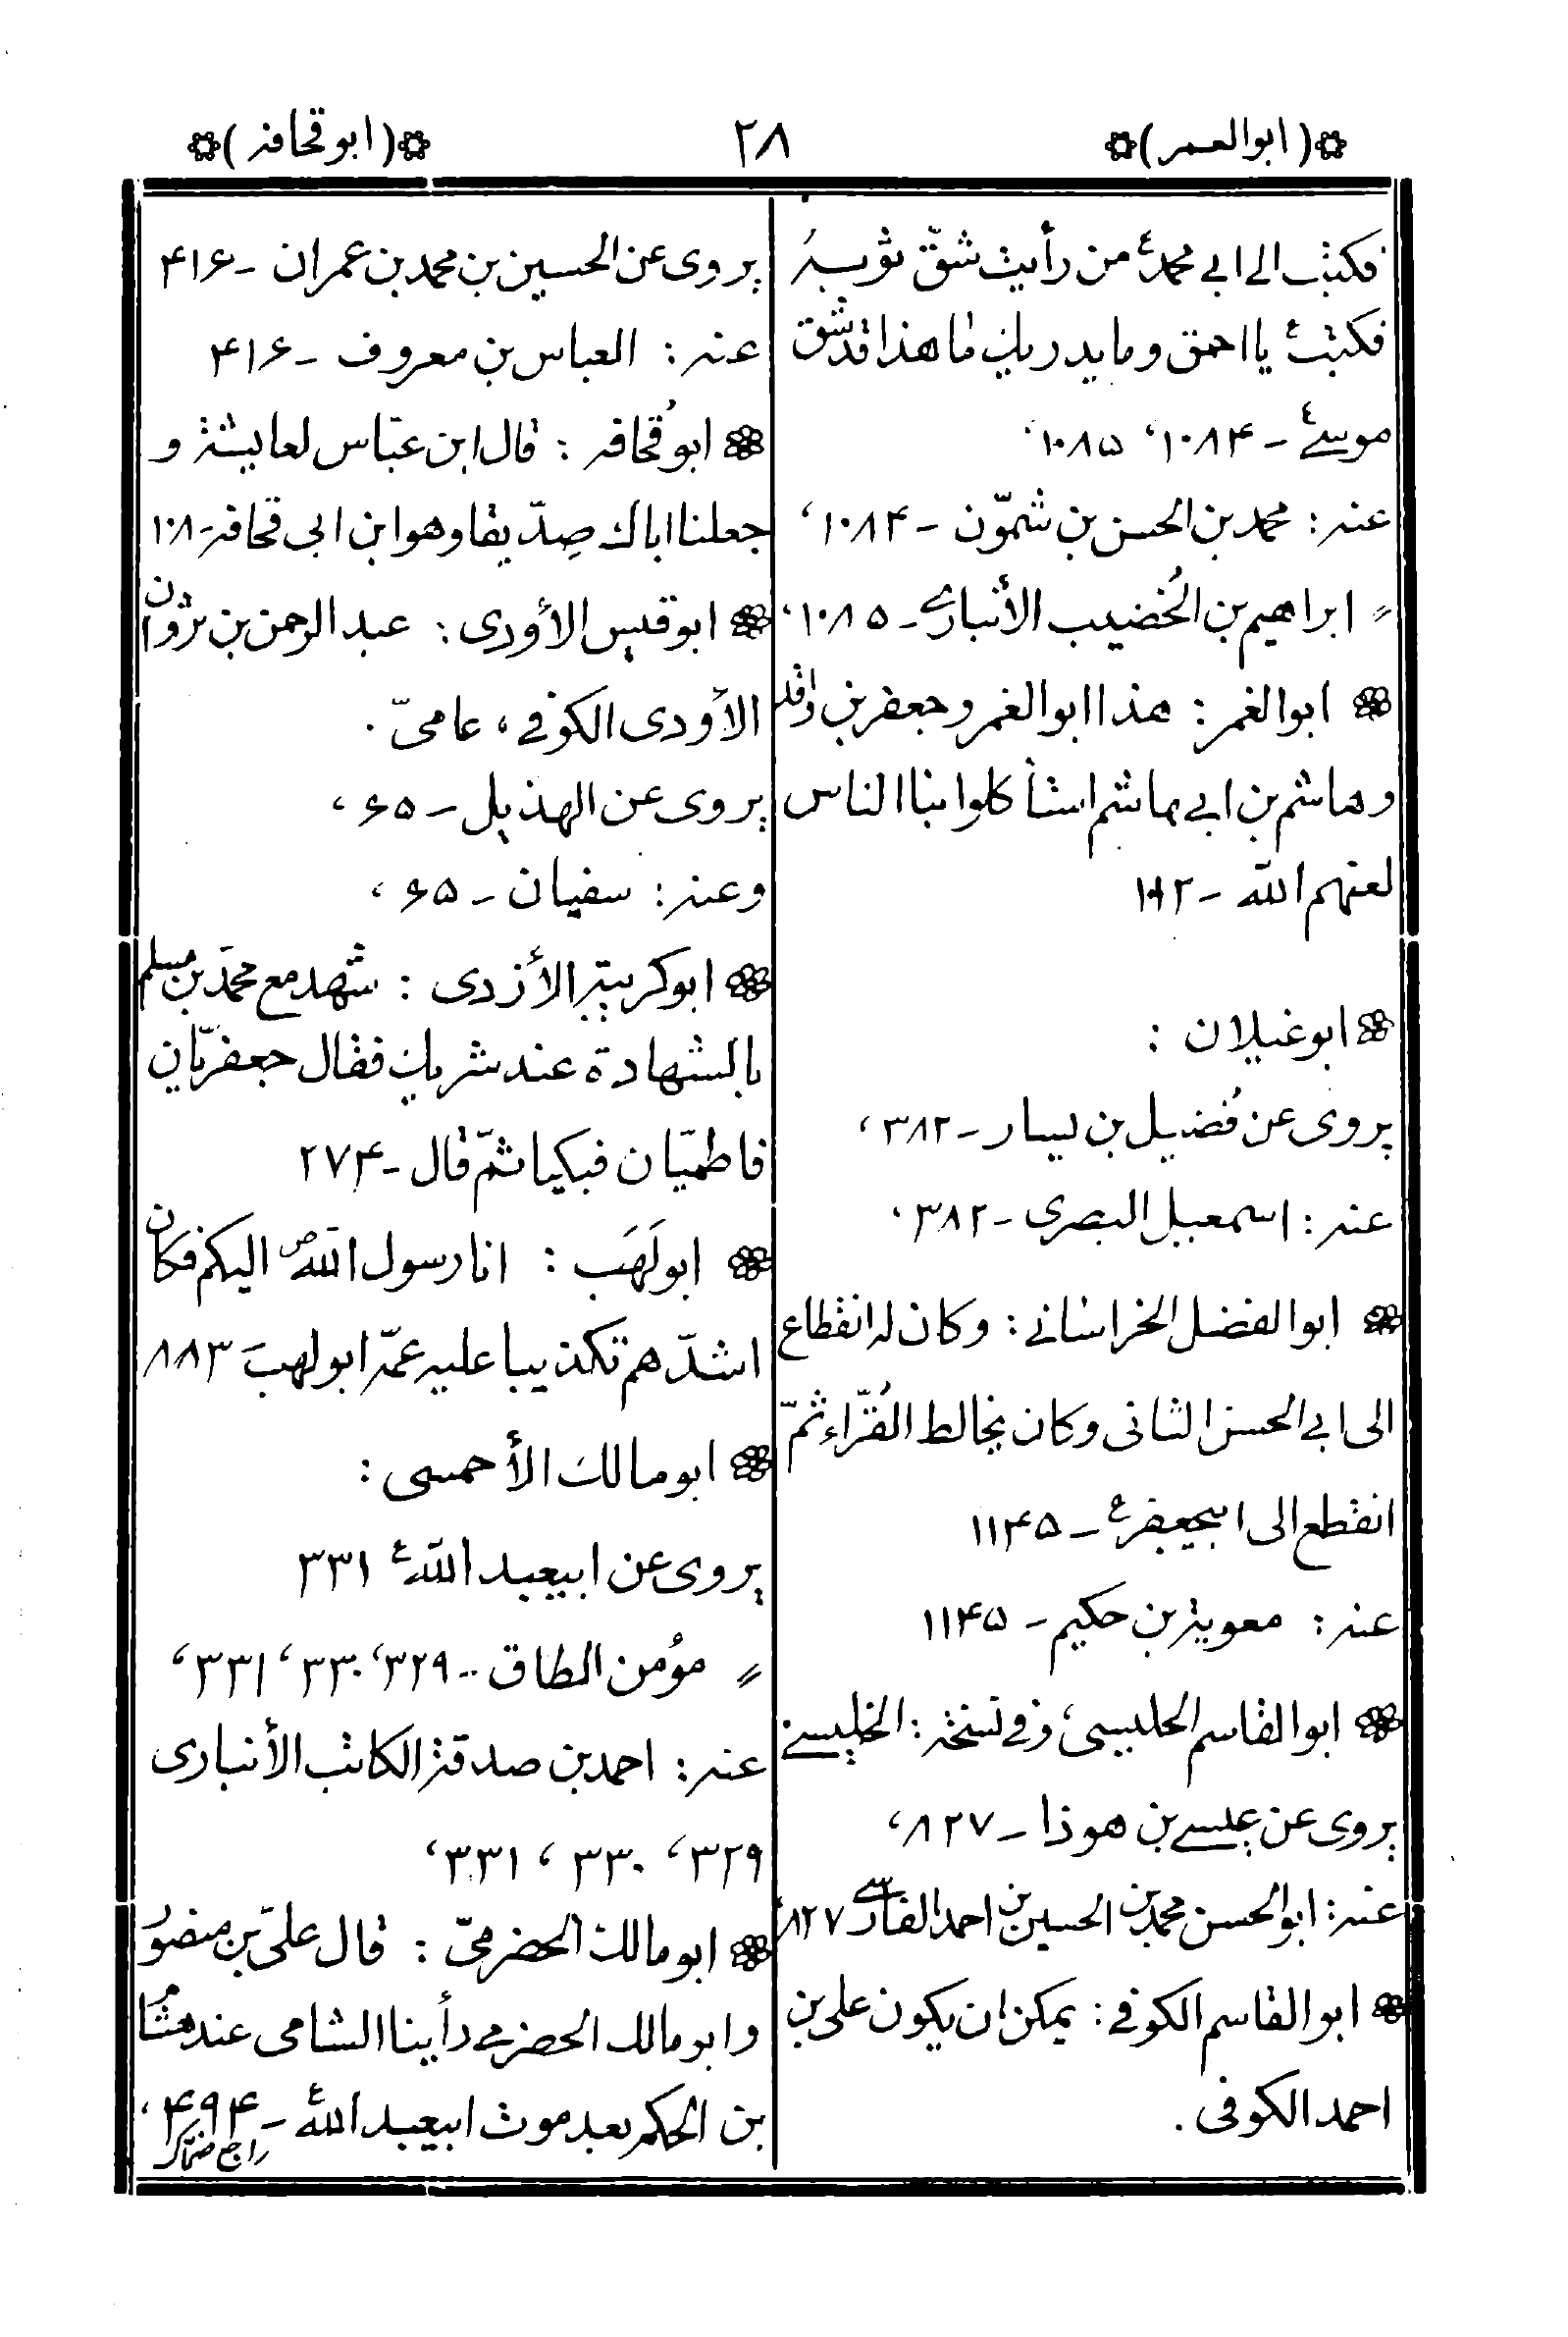 (ابوالعمر)
٢٨
(ابوقحافه)
فكتب الى ابي محمدؑ من رأيت شقّ ثوبه
فكتبؑ يا احمق وما يدريك ما هذا قد شق
موسىؑ - ١٠٨۴، ١٠٨۵.
عنه: محمد بن الحسن بن شمّون - ١٠٨۴،
〃 ابراهيم بن الخُضيب الأنباري - ١٠٨۵،
ابوالغمر: هذا ابوالغمر وجعفر بن واقد
وهاشم بن ابي هاشم استأكلوا بنا الناس
لعنهم الله - ١٠١٢
ابوغيلان:
يروى عن فُضيل بن يسار - ٣٨٢،
عنه: اسمعيل البصرى - ٣٨٢.
ابوالفضل الخراسانى: وكان له انقطاع
الى ابي الحسن الثانى وكان يخالط القُرّاء ثمّ
انقطع الى ابيجعفرؑ - ١١۴۵
عنه: معوية بن حكيم - ١١۴۵
ابوالقاسم الحليسى، وفي نسخة: الخليسى
يروى عن عيسى بن هوذا - ٨٢٧،
عنه: ابوالحسن محمد بن الحسين بن احمد الفارسى ٨٢٧،
ابوالقاسم الكوفي: يمكن ان يكون على بن
احمد الكوفى.
يروى عن الحسين بن محمد بن عمران - ۴١۶
عنه: العباس بن معروف - ۴١۶
ابوقُحافه: قال ابن عبّاس لعايشة و
جعلنا اباك صِدّيقا وهو ابن ابى قحافة - ١٠٨
ابوقيس الأودى: عبد الرحمن بن ثروان
الأودى الكوفي، عامىّ.
يروى عن الهذيل - ۶۵،
وعنه: سفيان - ۶۵،
ابوكريبة الأزدى: شهد مع محمد بن مسلم
بالشهادة عند شريك فقال جعفريّان
فاطميّان فبكيا ثمّ قال - ٢٧۴
ابولَهَب: انا رسول اللهص اليكم فكان
اشدّهم تكذيبا عليه عمّه ابولهب ٨٨٣
ابومالك الأحمسى:
يروى عن ابيعبد اللهؑ ٣٣١
〃 مؤمن الطاق - ٣٢٩، ٣٣٠، ٣٣١،
عنه: احمد بن صدقة الكاتب الأنبارى
٣٢٩، ٣٣٠، ٣٣١،
ابومالك الحضرمىّ: قال علىّ بن منصور
وابومالك الحضرمى رأينا الشامى عند هشام
بن الحكم بعد موت ابيعبد اللهؑ - ۴٩۴،
راجع ضحّاك